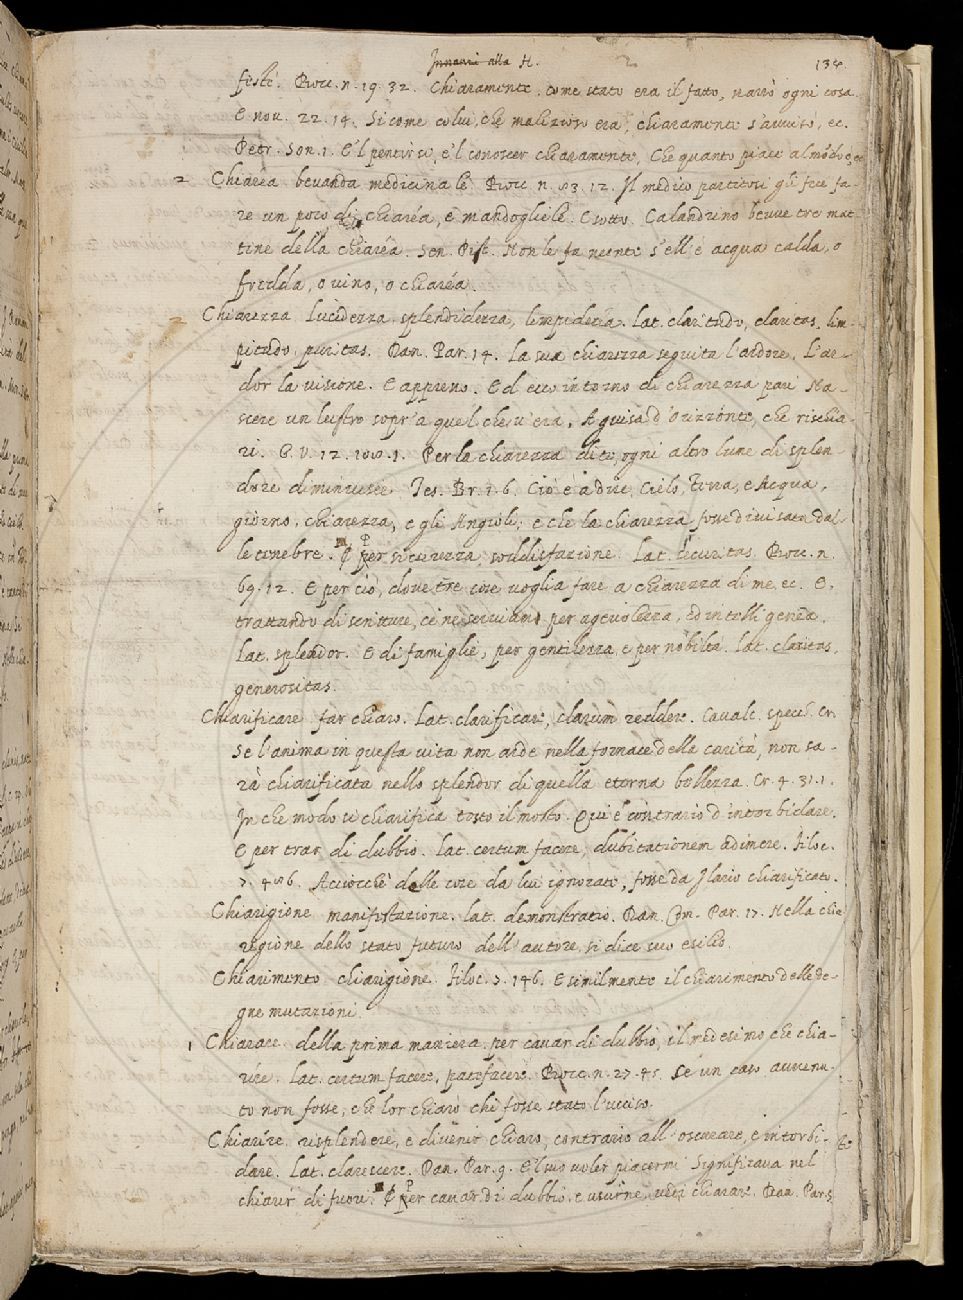 Innanzi alla H. 2 134
festi. Bocc. n. 19. 32. Chiaramente, come stato era il fatto, narrò ogni cosa.
E nou. 22. 14. Sicome colui, che malizioso era, chiaramente s'auuisò, ec.
Petr. Son. 1. E 'l pentirsi, e 'l conoscer chiaramente, Che quanto piace al módo è, ec
2 Chiarèa beuanda medicinale. Bocc. n. 83. 12. Il medico partitosi gli fece fa-
re un poco di chiaréa, e mandogliele. E sotto. Calandrino beuue tre mat-
tine della chiaréa. Sen. Pist. Non le fa neente s'ell' è acqua calda, o
fredda, o uino, o chiaréa.
2 Chiarezza. Lucidezza, splendidezza, limpidezza. Lat. claritudo, claritas, lim-
pitudo, puritas. Dan. Par. 14. La sua chiarezza seguita l'ardore, L'ar-
dor la uisione. E appresso. Ed ecco intorno di chiarezza pari Na-
scere un lustro sopr' a quel che u'era, A guisa d'orizzonte, che rischia-
ri. G. V. 12. 108. 1. Per la chiarezza di te, ogni altro lume di splen-
dore diminuisce. Tes. Br. 1. 6. Ciò è a dire, Cielo, Terra, e Acqua,
giorno, chiarezza, e gli Angioli, e che la chiarezza fosse diuisata dal-
le tenebre. ¶ Per sicurezza, soddisfazione. Lat. securitas. Bocc. n.
69. 12. E per ciò, doue tre cose uoglia fare a chiarezza di me, ec. E,
trattando di scritture, ce ne seruiamo per ageuolezza, ed intelligenza.
Lat. splendor. E di famiglie, per gentilezza, e per nobiltà. Lat. claritas,
generositas.
Chiarificare far chiaro. Lat. clarificare, clarum reddere. Caualc. specc. cr.
Se l'anima in questa uita non arde nella fornace della carità, non sa-
rà chiarificata nello splendor di quella eterna bellezza. Cr. 4. 31. 1.
In che modo si chiarifica tosto il mosto. Qui è contrario d'intorbidare.
E per trar di dubbio. Lat. certum facere, dubitationem adimere. Filoc.
7. 486. Acciocchè delle cose da lui ignorate, fosse da Ilario chiarificato.
Chiarigione manifestazione. Lat. demonstratio. Dan. Com. Par. 17. Nella chia
rigione dello stato futuro dell'autore, si dice suo esilio.
Chiarimento chiarigione. Filoc. 7. 146. E similmente il chiarimento delle de-
gne mutazioni.
1 Chiarare della prima maniera. per cauar di dubbio, il medesimo che chia-
rire. Lat. certum facere, patefacere. Bocc. n. 27. 45. Se un caso auuenu-
to non fosse, che lor chiarò chi fosse stato l'ucciso.
Chiarire. risplendere, e diuenir chiaro, contrario all' oscurare, e intorbi-
dare. Lat. clarescere. Dan. Par. 9. E 'l suo uoler piacermi Significaua nel
chiarir di fuori. ¶ Per cauar di dubbio, e uscirne. uedi chiarare. Dan. Par. 5